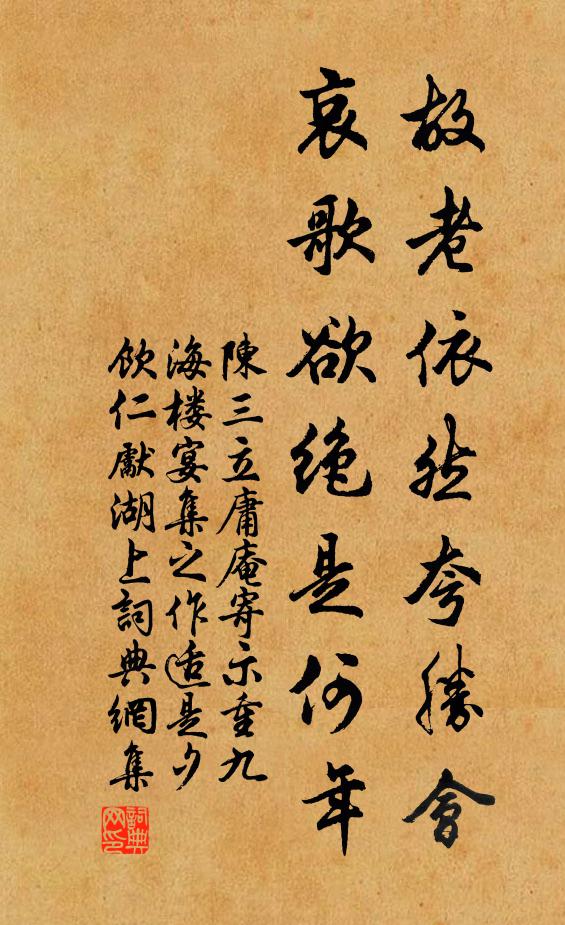 故老依然夸勝會
哀歌欲绝是何年
陳三立庸庵寄示重九
海楼宴集之作适是夕
飲仁獻湖上詞典網集
詞典
网印